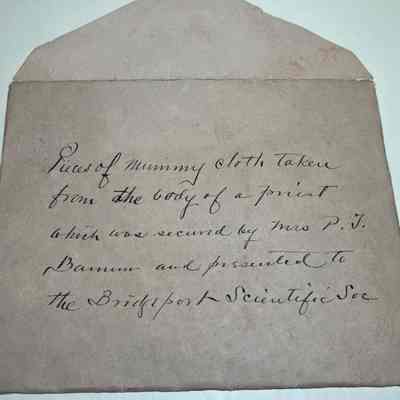 Pieces of mummy cloth taken
from the body of a priest
which was secured by Mrs P. T.
Barnum and presented to
the Bridgeport Scientific Soc